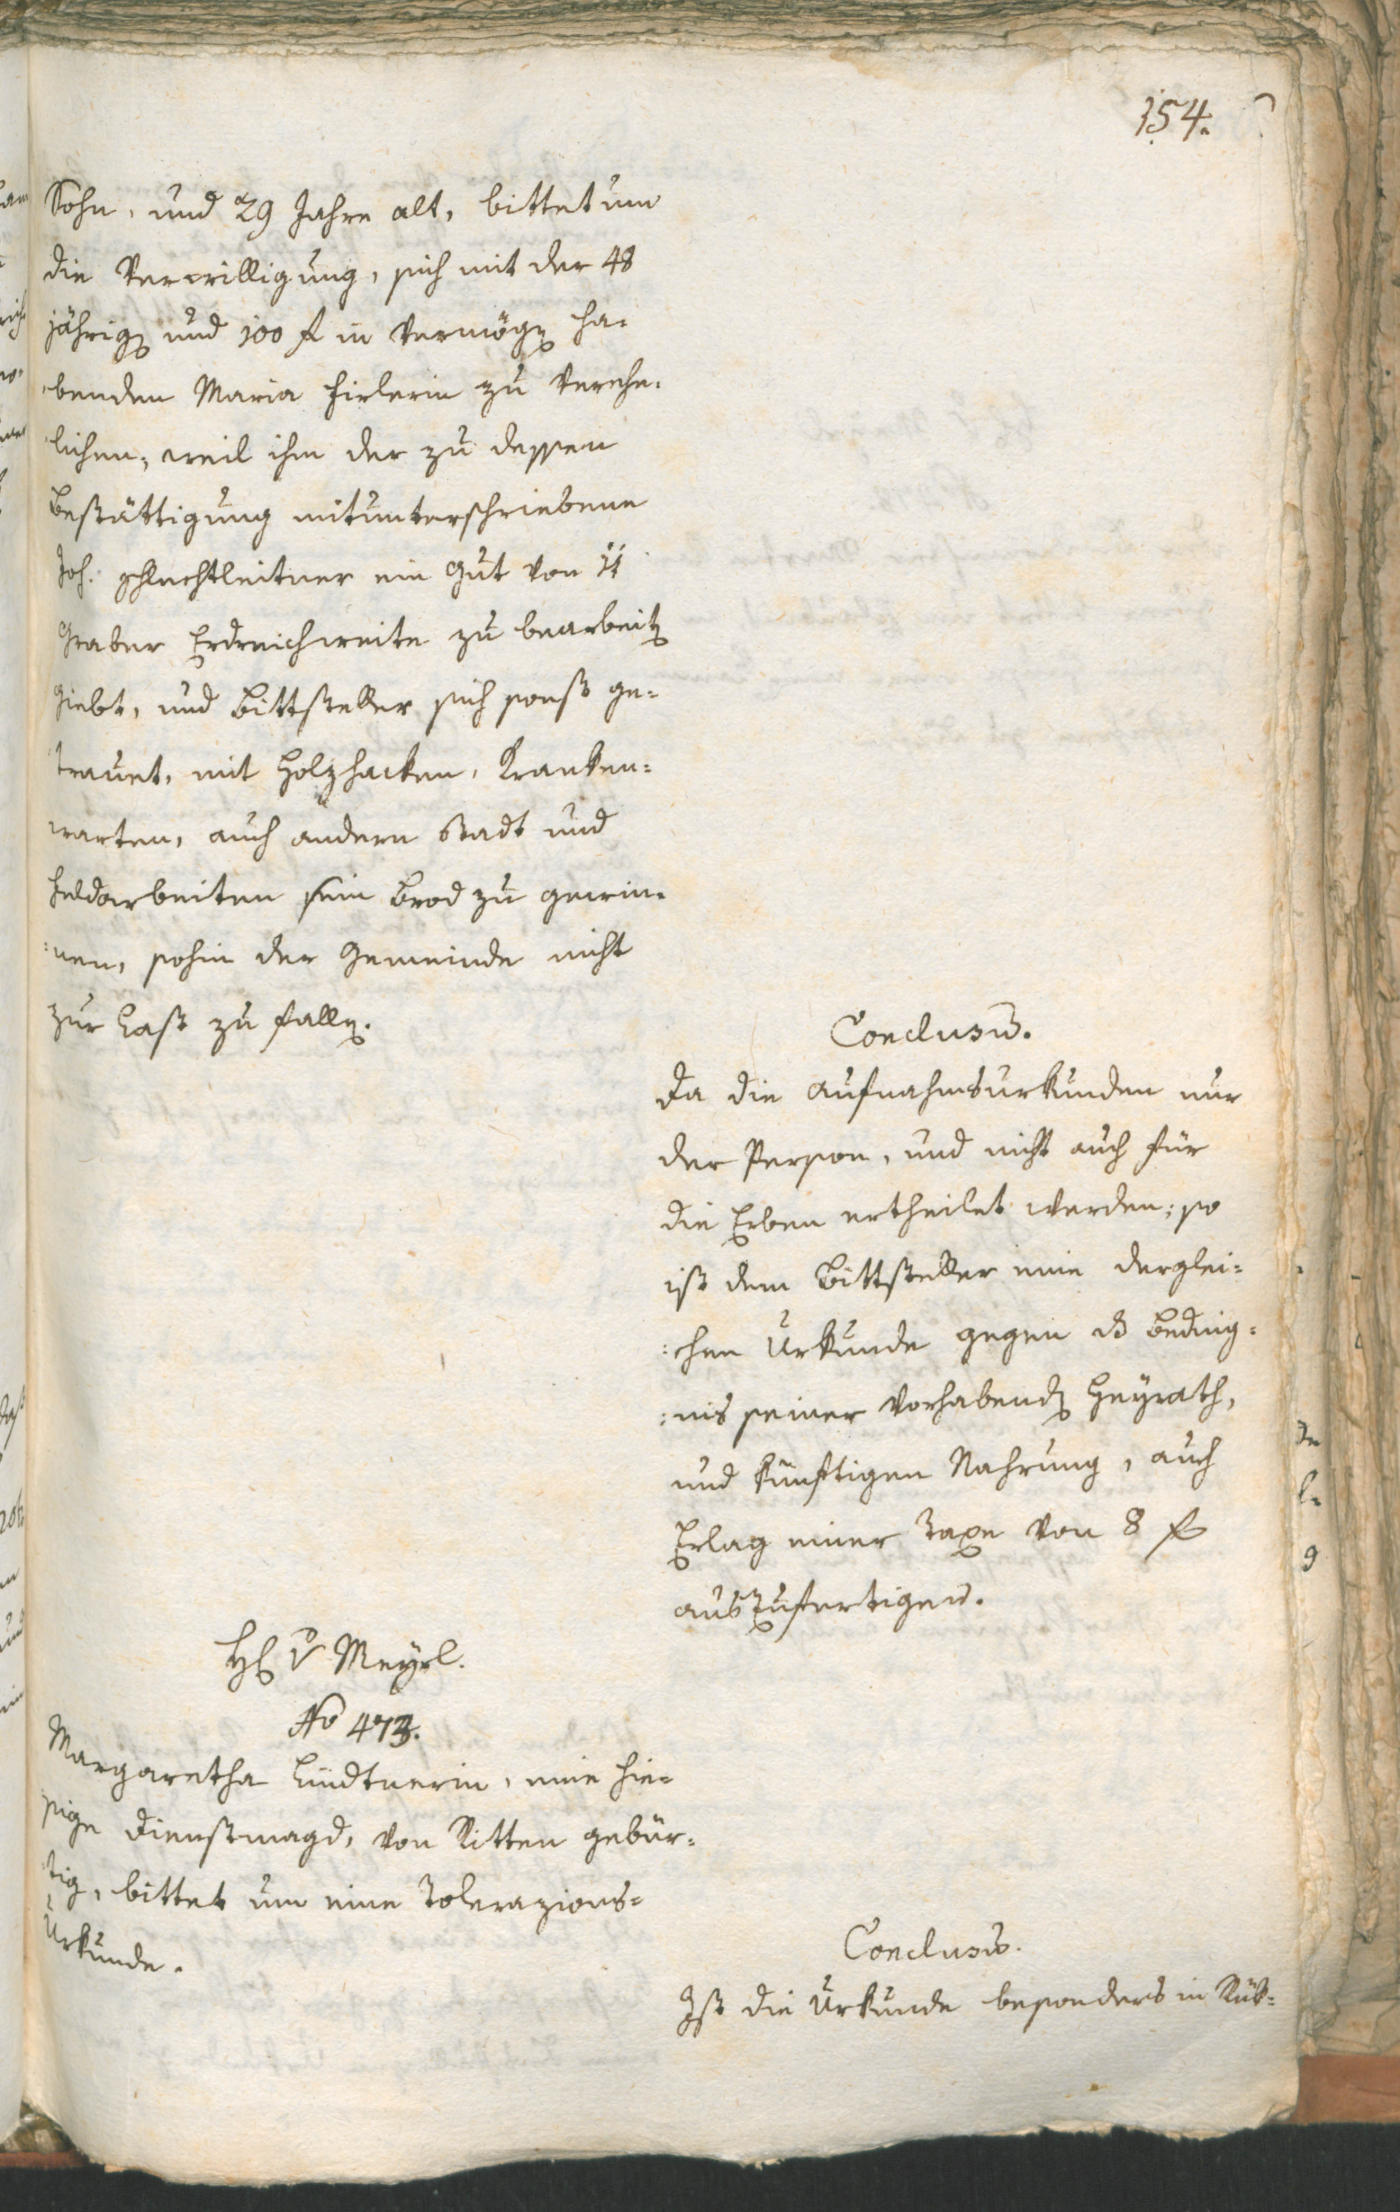 154.
Sohn, und 29 Jahre alt, bittet um
die Verwilligung, sich mit der 48
jährig und 100 f in Vermög ha-
benden Maria Hirlerin zu Verehe-
lichen, weil ihm der zu dessen
Bestättigung mitunterschriebene
Joh. Schlechtleitner ein Gut von 11
Graber Erdreichweite zu bearbeit
giebt, und Bittsteller sich sonst ge-
trauet, mit Holzhacken, Kranken-
warten, auch andern Stadt und
Feldarbeiten sein Brod zu gewin-
nen, sohin der Gemeinde nicht
zur Last zu fallen.
Conclusum.
Da die Aufnahmsurkunden nur
der Person, und nicht auch für
die Erben ertheilet werden; so
ist dem Bittsteller eine derglei-
chen Urkunde gegen Beding-
nis seiner Vorhabend Heyrath,
und künftigen Nahrung, auch
Erlag einer Taxe von 8 f
auszufertigen.
H v Meyrl.
No 473.
Margaretha Lindtnerin, eine hie-
sige Dienstmagd, von Ritten gebür-
tig, bittet um eine Tolerazions-
Urkunde.
Conclusum.
Ist die Urkunde besonders in Rük-